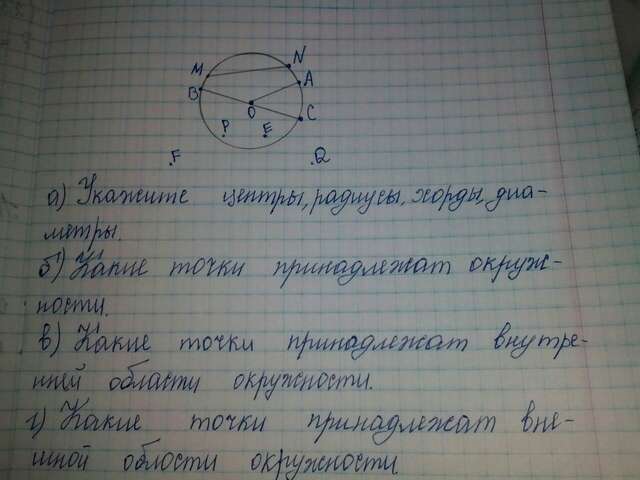 M N
B A
O C
P E
F Q
а) Укажите центры, радиусы, хорды, диа-
метры.
б) Какие точки принадлежат окруж-
ности.
в) Какие точки принадлежат внутре-
нней области окружности.
г) Какие точки принадлежат вне-
шной области окружности